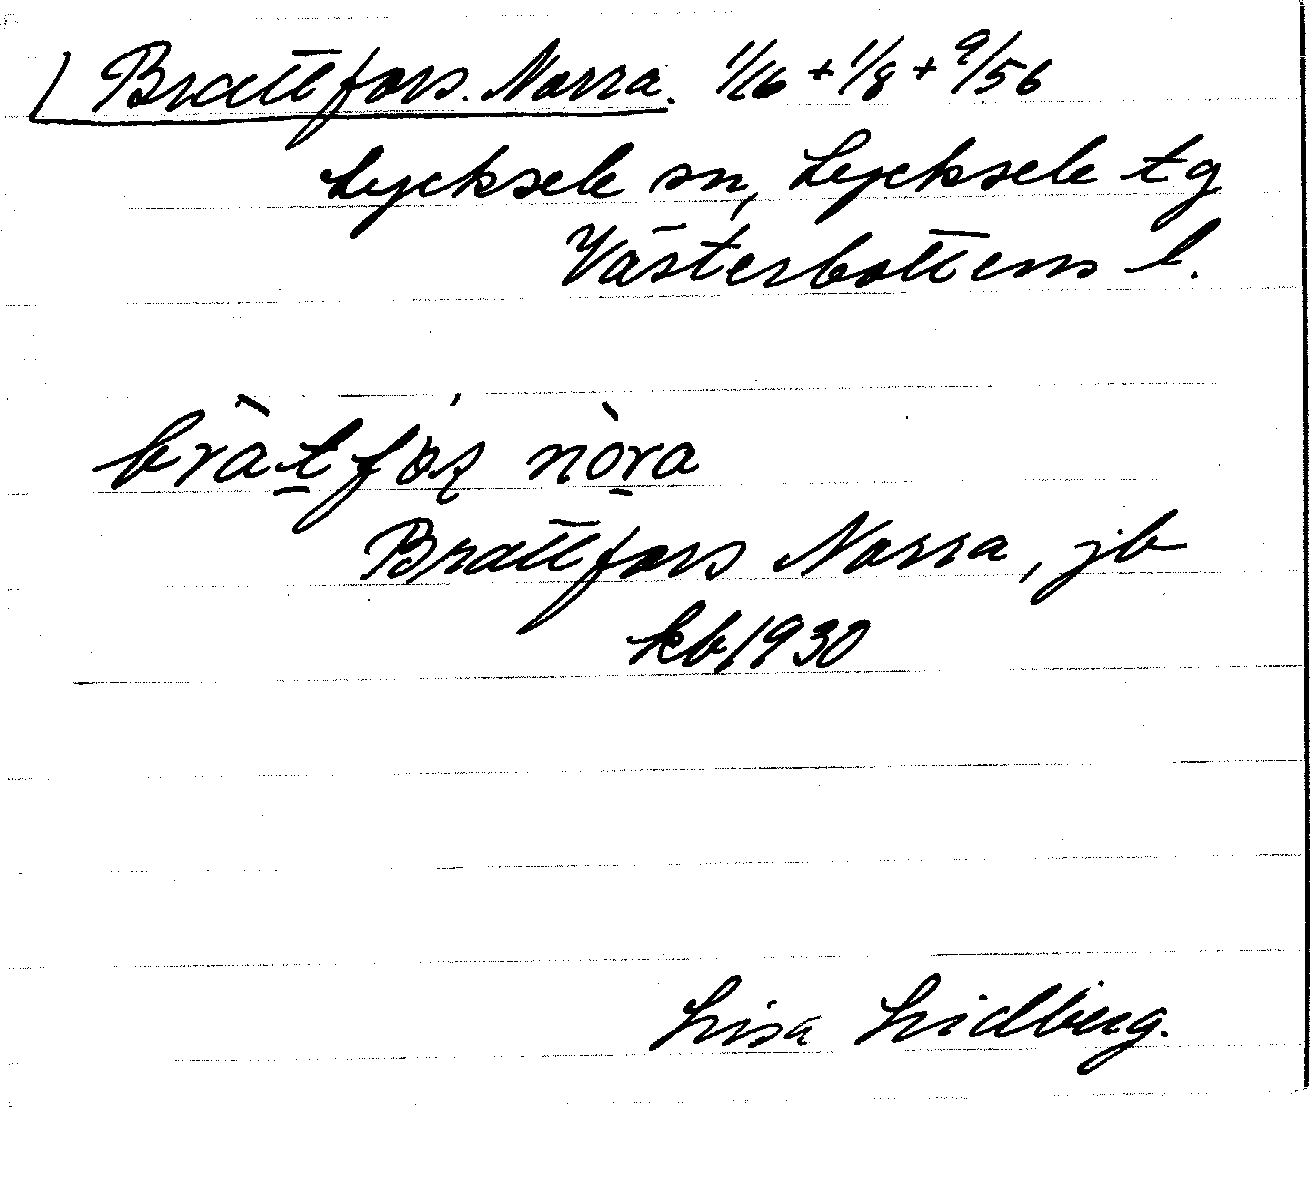 Brattfors. Norra. 1/16 + 1/8 + 9/56
Lycksele sn, Lycksele tg
Västerbottens l.
bràt̠fo̗ʂ nòr̠a
Brattfors Norra, jb
kb 1930
Lisa Lidberg.